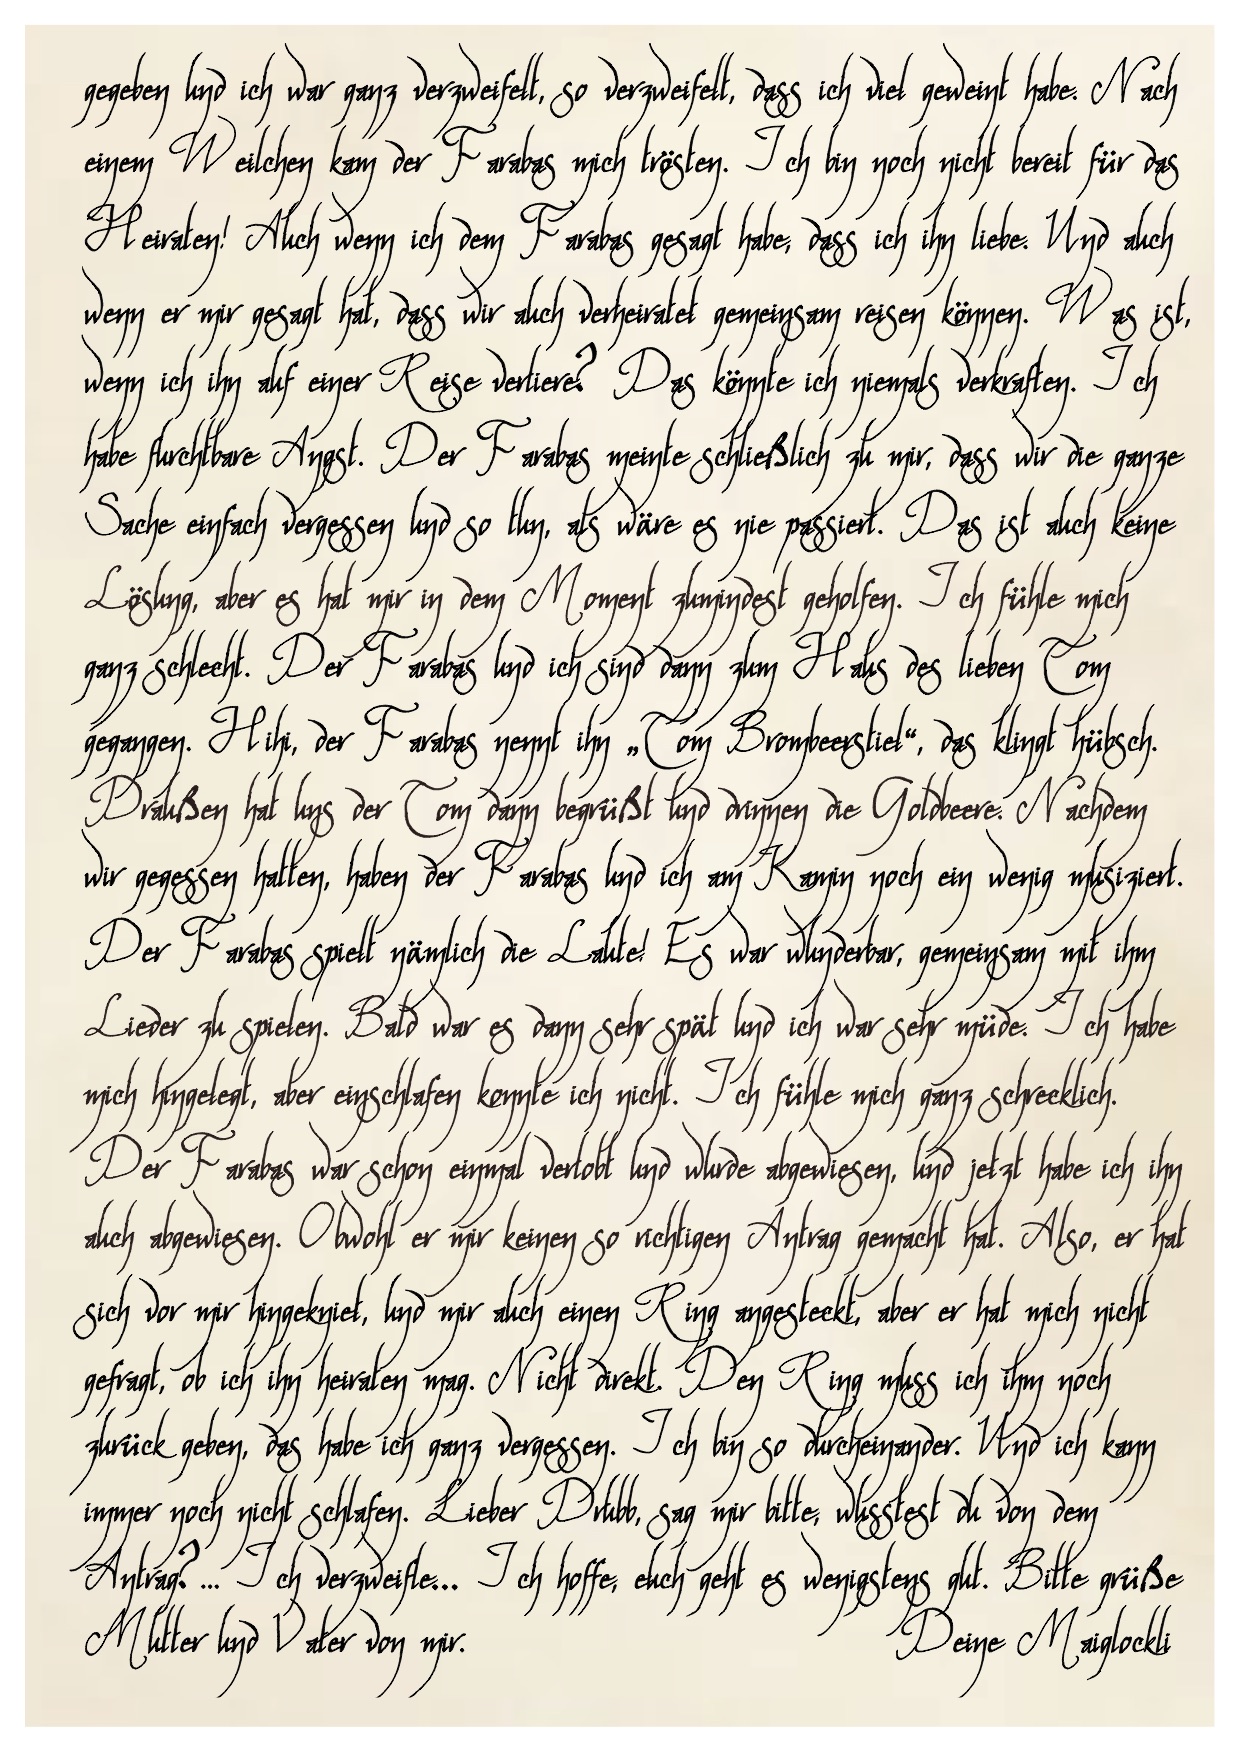 gegeben und ich war ganz verzweifelt, so verzweifelt, dass ich viel geweint habe. Nach
einem Weilchen kam der Farabas mich trösten. Ich bin noch nicht bereit für das
Heiraten! Auch wenn ich dem Farabas gesagt habe, dass ich ihn liebe. Und auch
wenn er mir gesagt hat, dass wir auch verheiratet gemeinsam reisen können. Was ist,
wenn ich ihn auf einer Reise verliere? Das könnte ich niemals verkraften. Ich
habe furchtbare Angst. Der Farabas meinte schließlich zu mir, dass wir die ganze
Sache einfach vergessen und so tun, als wäre es nie passiert. Das ist auch keine
Lösung, aber es hat mir in dem Moment zumindest geholfen. Ich fühle mich
ganz schlecht. Der Farabas und ich sind dann zum Haus des lieben Tom
gegangen. Hihi, der Farabas nennt ihn „Tom Brombeerstiel“, das klingt hübsch.
Draußen hat uns der Tom dann begrüßt und drinnen die Goldbeere. Nachdem
wir gegessen hatten, haben der Farabas und ich am Kamin noch ein wenig musiziert.
Der Farabas spielt nämlich die Laute! Es war wunderbar, gemeinsam mit ihm
Lieder zu spielen. Bald war es dann sehr spät und ich war sehr müde. Ich habe
mich hingelegt, aber einschlafen konnte ich nicht. Ich fühle mich ganz schrecklich.
Der Farabas war schon einmal verlobt und wurde abgewiesen, und jetzt habe ich ihn
auch abgewiesen. Obwohl er mir keinen so richtigen Antrag gemacht hat. Also, er hat
sich vor mir hingekniet, und mir auch einen Ring angesteckt, aber er hat mich nicht
gefragt, ob ich ihn heiraten mag. Nicht direkt. Den Ring muss ich ihm noch
zurück geben, das habe ich ganz vergessen. Ich bin so durcheinander. Und ich kann
immer noch nicht schlafen. Lieber Drubb, sag mir bitte, wusstest du von dem
Antrag? ... Ich verzweifle... Ich hoffe, euch geht es wenigstens gut. Bitte grüße
Mutter und Vater von mir. Deine Maiglockli